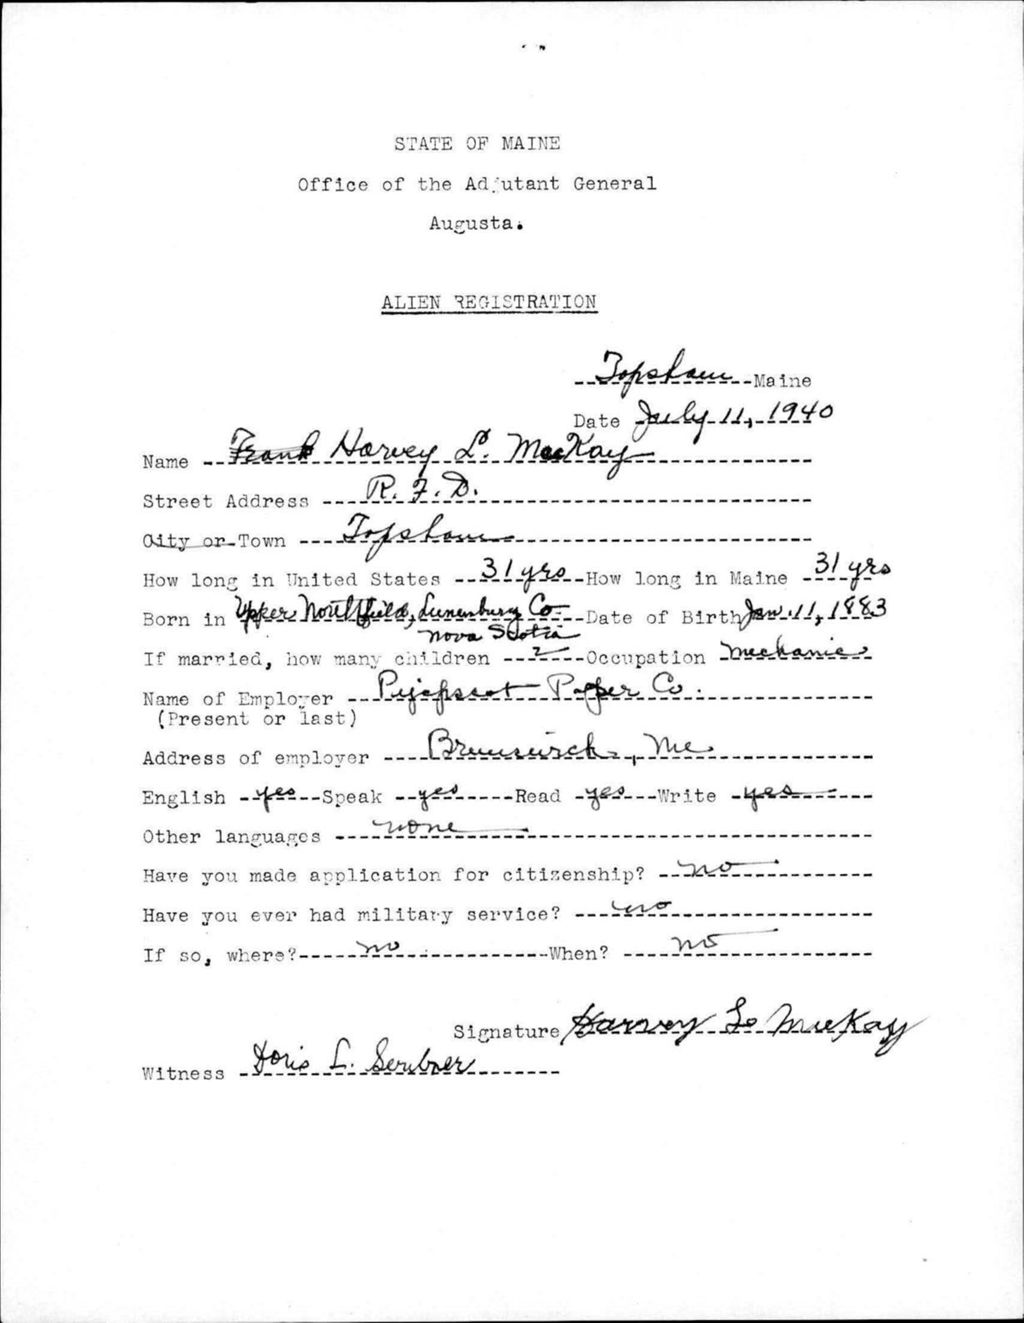 STATE OF MAINE
Office of the Adjutant General
Augusta.
ALIEN REGISTRATION
Topsham Maine
Date July 11, 1940
Name Frank Harvey L. MacKay
Street Address R. F. D.
City or Town Topsham
How long in United States 31 yrs How long in Maine 31 yrs
Born in Upper Northfield, Lunenburg Co. Date of Birth Jan. 11, 1883
Nova Scotia
If married, how many children 2 Occupation Mechanic
Name of Employer Pejepscot Paper Co.
(Present or last)
Address of employer Brunswick, Me.
English yes Speak yes Read yes Write yes
Other languages none
Have you made application for citizenship? no
Have you ever had military service? no
If so, where? no When? no
Signature Harvey L MacKay
Witness Doris L. Scribner